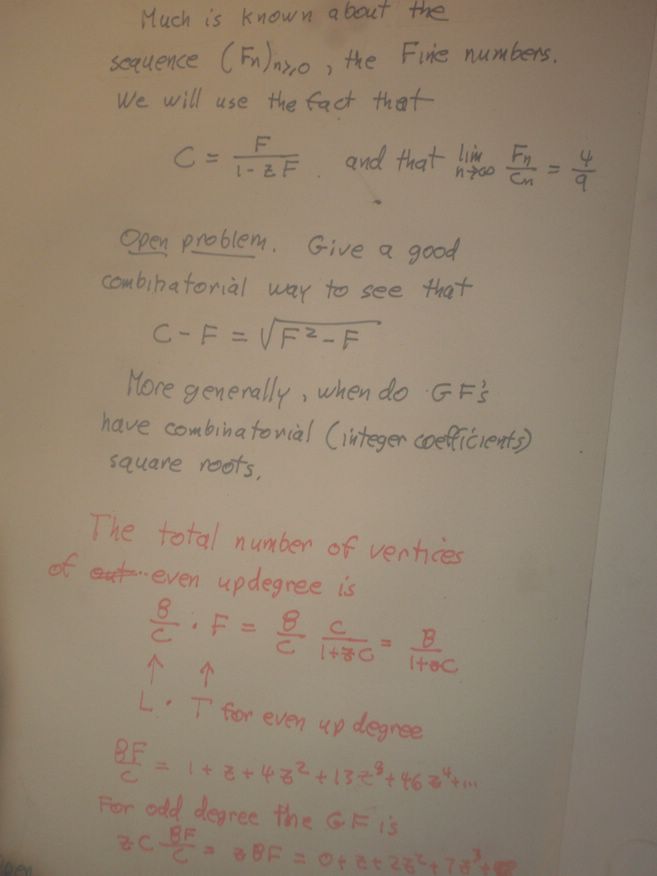 Much is known about the
sequence (Fn)n≥0, the Fine numbers.
We will use the fact that
C = F / (1 - zF) . and that lim n→∞ Fn/Cn = 4/9
Open problem. Give a good
combinatorial way to see that
C - F = √(F² - F)
More generally, when do GF's
have combinatorial (integer coefficients)
square roots.
The total number of vertices
of even updegree is
B/C · F = B/C C/(1+zC) = B/(1+zC)
↑ ↑
L · T for even up degree
BF/C = 1 + z + 4z² + 13z³ + 46z⁴ + ...
For odd degree the GF is
zC BF/C = zBF = 0 + z + 2z² + 7z³ +